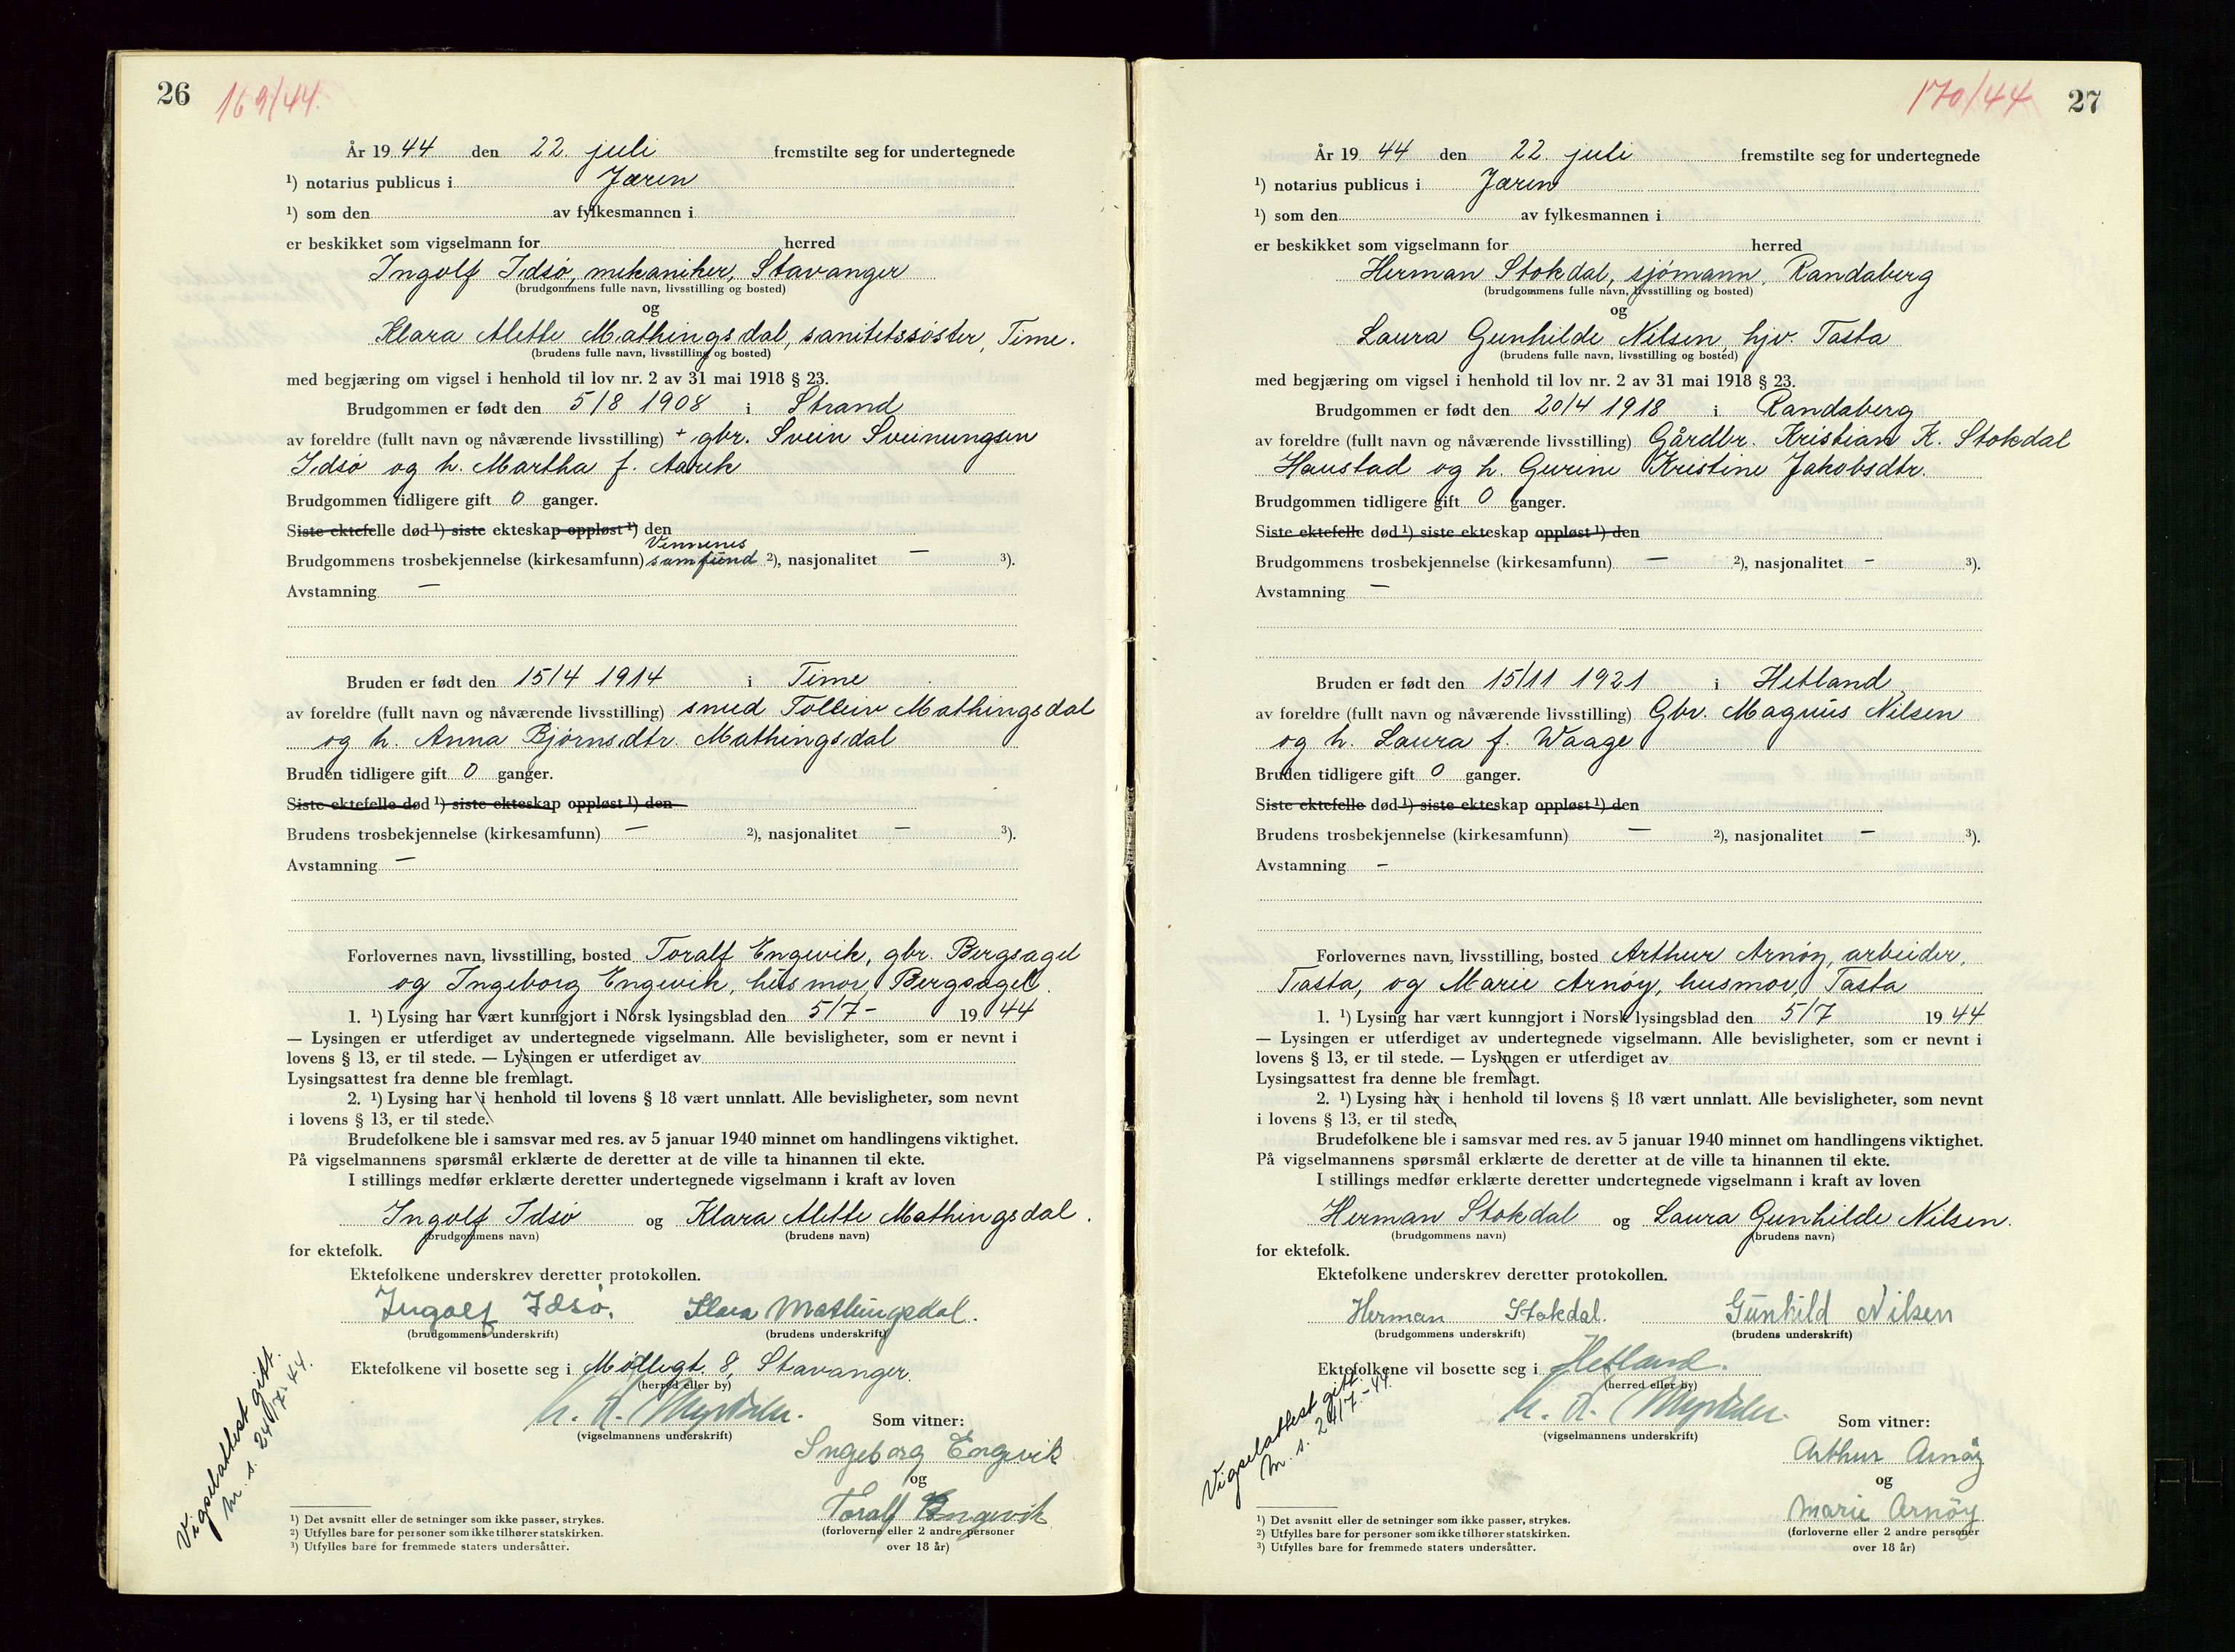 26 169/44.
År 19 44 den 22. juli fremstilte seg for undertegnede
¹) notarius publicus i Jæren
¹) som den av fylkesmannen i
er beskikket som vigselmann for herred
Ingolf Idsø, mekaniker, Stavanger
(brudgommens fulle navn, livsstilling og bosted)
og
Klara Alette Mathingsdal, sanitetssøster, Time.
(brudens fulle navn, livsstilling og bosted)
med begjæring om vigsel i henhold til lov nr. 2 av 31 mai 1918 § 23.
Brudgommen er født den 5/8 1908 i Strand
av foreldre (fullt navn og nåværende livsstilling) + gbr. Svein Sveinungsen
Idsø og h. Martha f. Aarek
Brudgommen tidligere gift 0 ganger.
Siste ektefelle død ¹) siste ekteskap oppløst ¹) den
Vennenes
Brudgommens trosbekjennelse (kirkesamfunn) samfund ²), nasjonalitet — ³).
Avstamning —
Bruden er født den 15/4 1914 i Time
av foreldre (fullt navn og nåværende livsstilling) smed Tolleiv Mathingsdal
og h. Anna Bjørnsdtr. Mathingsdal
Bruden tidligere gift 0 ganger.
Siste ektefelle død ¹) siste ekteskap oppløst ¹) den
Brudens trosbekjennelse (kirkesamfunn) — ²), nasjonalitet — ³).
Avstamning —
Forlovernes navn, livsstilling, bosted Toralf Engevik, gbr. Bergsagel
og Ingeborg Engevik, husmor, Bergsagel.
1. ¹) Lysing har vært kunngjort i Norsk lysingsblad den 5/7- 19 44
— Lysingen er utferdiget av undertegnede vigselmann. Alle bevisligheter, som er nevnt i
lovens § 13, er til stede. — Lysingen er utferdiget av
Lysingsattest fra denne ble fremlagt.
2. ¹) Lysing har i henhold til lovens § 18 vært unnlatt. Alle bevisligheter, som nevnt
i lovens § 13, er til stede.
Brudefolkene ble i samsvar med res. av 5 januar 1940 minnet om handlingens viktighet.
På vigselmannens spørsmål erklærte de deretter at de ville ta hinannen til ekte.
I stillings medfør erklærte deretter undertegnede vigselmann i kraft av loven
Ingolf Idsø og Klara Alette Mathingsdal.
(brudgommens navn) (brudens navn)
for ektefolk.
Ektefolkene underskrev deretter protokollen.
Ingolf Idsø. Klara Mathingsdal.
(brudgommens underskrift) (brudens underskrift)
Ektefolkene vil bosette seg i Møllegt. 8, Stavanger.
(herred eller by)
Som vitner:
(vigselmannens underskrift)
Ingeborg Engevik
og
Toralf Engevik
(forloverne eller 2 andre personer
over 18 år)
Vigselattest gitt.
m. s. 24/7-44.
¹) Det avsnitt eller de setninger som ikke passer, strykes.
²) Utfylles bare for personer som ikke tilhører statskirken.
³) Utfylles bare for fremmede staters undersåtter.
170/44 27
År 19 44 den 22. juli fremstilte seg for undertegnede
¹) notarius publicus i Jæren
¹) som den av fylkesmannen i
er beskikket som vigselmann for herred
Herman Stokdal, sjømann, Randaberg
(brudgommens fulle navn, livsstilling og bosted)
og
Laura Gunhilde Nilsen, hjv. Tasta
(brudens fulle navn, livsstilling og bosted)
med begjæring om vigsel i henhold til lov nr. 2 av 31 mai 1918 § 23.
Brudgommen er født den 20/4 1918 i Randaberg
av foreldre (fullt navn og nåværende livsstilling) Gårdbr. Kristian K. Stokdal
Haustad og h. Gurine Kristine Jakobsdtr.
Brudgommen tidligere gift 0 ganger.
Siste ektefelle død ¹) siste ekteskap oppløst ¹) den
Brudgommens trosbekjennelse (kirkesamfunn) — ²), nasjonalitet - ³).
Avstamning —
Bruden er født den 15/11 1921 i Hetland
av foreldre (fullt navn og nåværende livsstilling) Gbr. Magnus Nilsen
og h. Laura f. Waage
Bruden tidligere gift 0 ganger.
Siste ektefelle død ¹) siste ekteskap oppløst ¹) den
Brudens trosbekjennelse (kirkesamfunn) — ²), nasjonalitet — ³).
Avstamning -
Forlovernes navn, livsstilling, bosted Arthur Arnøy, arbeider,
Tasta, og Marie Arnøy, husmor, Tasta
1. ¹) Lysing har vært kunngjort i Norsk lysingsblad den 5/7 19 44
— Lysingen er utferdiget av undertegnede vigselmann. Alle bevisligheter, som er nevnt i
lovens § 13, er til stede. — Lysingen er utferdiget av
Lysingsattest fra denne ble fremlagt.
2. ¹) Lysing har i henhold til lovens § 18 vært unnlatt. Alle bevisligheter, som nevnt
i lovens § 13, er til stede.
Brudefolkene ble i samsvar med res. av 5 januar 1940 minnet om handlingens viktighet.
På vigselmannens spørsmål erklærte de deretter at de ville ta hinannen til ekte.
I stillings medfør erklærte deretter undertegnede vigselmann i kraft av loven
Herman Stokdal og Laura Gunhilde Nilsen.
(brudgommens navn) (brudens navn)
for ektefolk.
Ektefolkene underskrev deretter protokollen.
Herman Stokdal. Gunhild Nilsen
(brudgommens underskrift) (brudens underskrift)
Ektefolkene vil bosette seg i Hetland.
(herred eller by)
Som vitner:
(vigselmannens underskrift)
Arthur Arnøy
og
Marie Arnöy
(forloverne eller 2 andre personer
over 18 år)
Vigselattest gitt.
m. s. 24/7-44.
¹) Det avsnitt eller de setninger som ikke passer, strykes.
²) Utfylles bare for personer som ikke tilhører statskirken.
³) Utfylles bare for fremmede staters undersåtter.